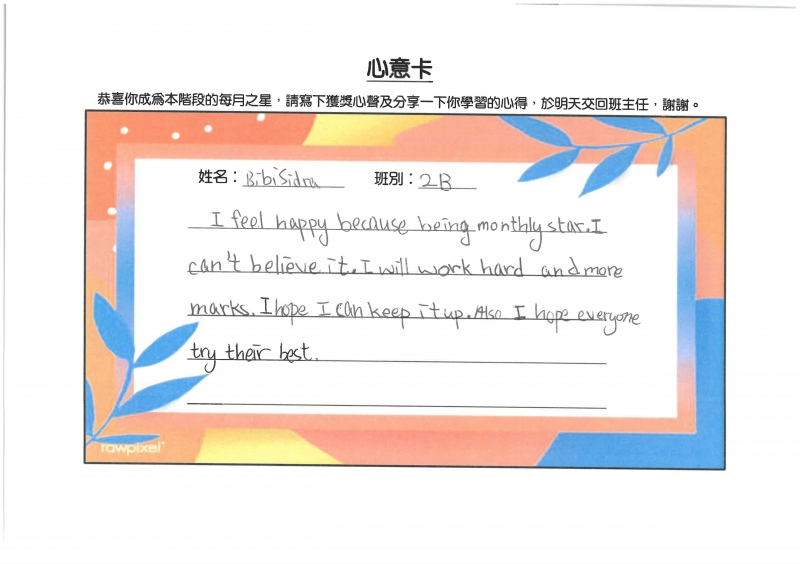 心意卡
恭喜你成為本階段的每月之星，請寫下獲獎心聲及分享一下你學習的心得，於明天交回班主任，謝謝。
姓名：BibiSidra 班別：2B
I feel happy because being monthly star. I
can't believe it. I will work hard and more
marks. I hope I can keep it up. Also I hope everyone
try their best.
rawpixel